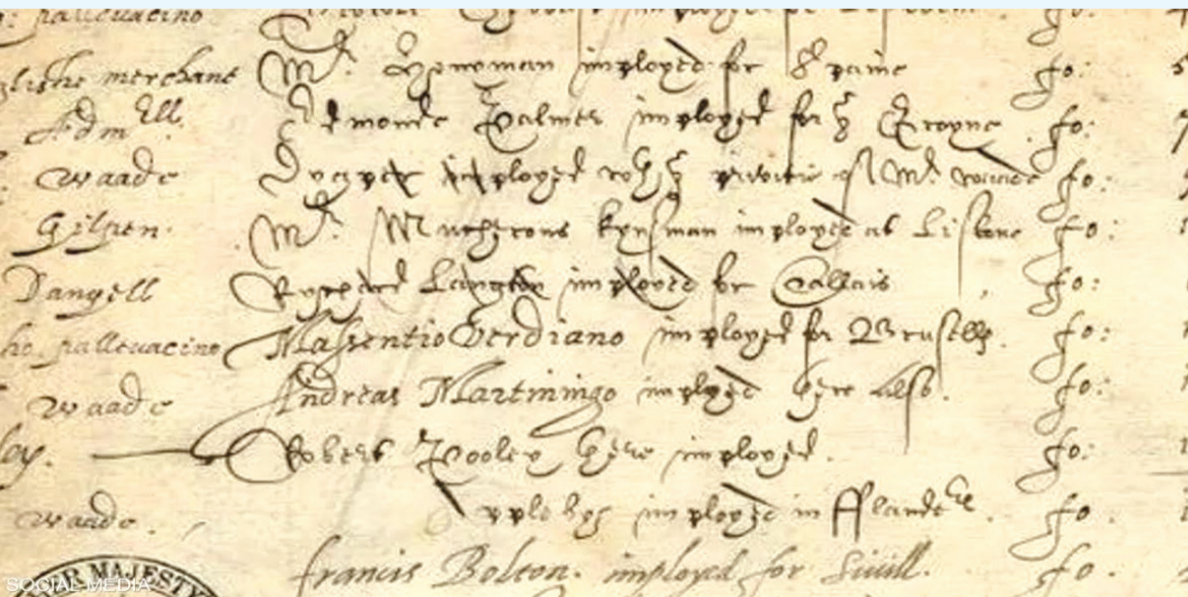 pallevacino
merchant Mr. imployed for Spaine fo:
Admyll. Edmonde Palmer imployed for ye Groyne. fo:
waade imployed wth ye privitie of Mr. waade fo:
Gilpen. Mr. kynsman imployed at Lisbone fo:
Dangell Rychard Langton imployed for Callais fo:
ho. pallevacino Massentio Verdiano imployed for Brusells. fo:
waade Andreas Martiningo imployed here also. fo:
ley. Robert Pooley here imployed. fo:
waade. imployed in Flanders. fo.
francis Bolton. imployed for Sivill. fo.
MAJESTY
SOCIAL MEDIA